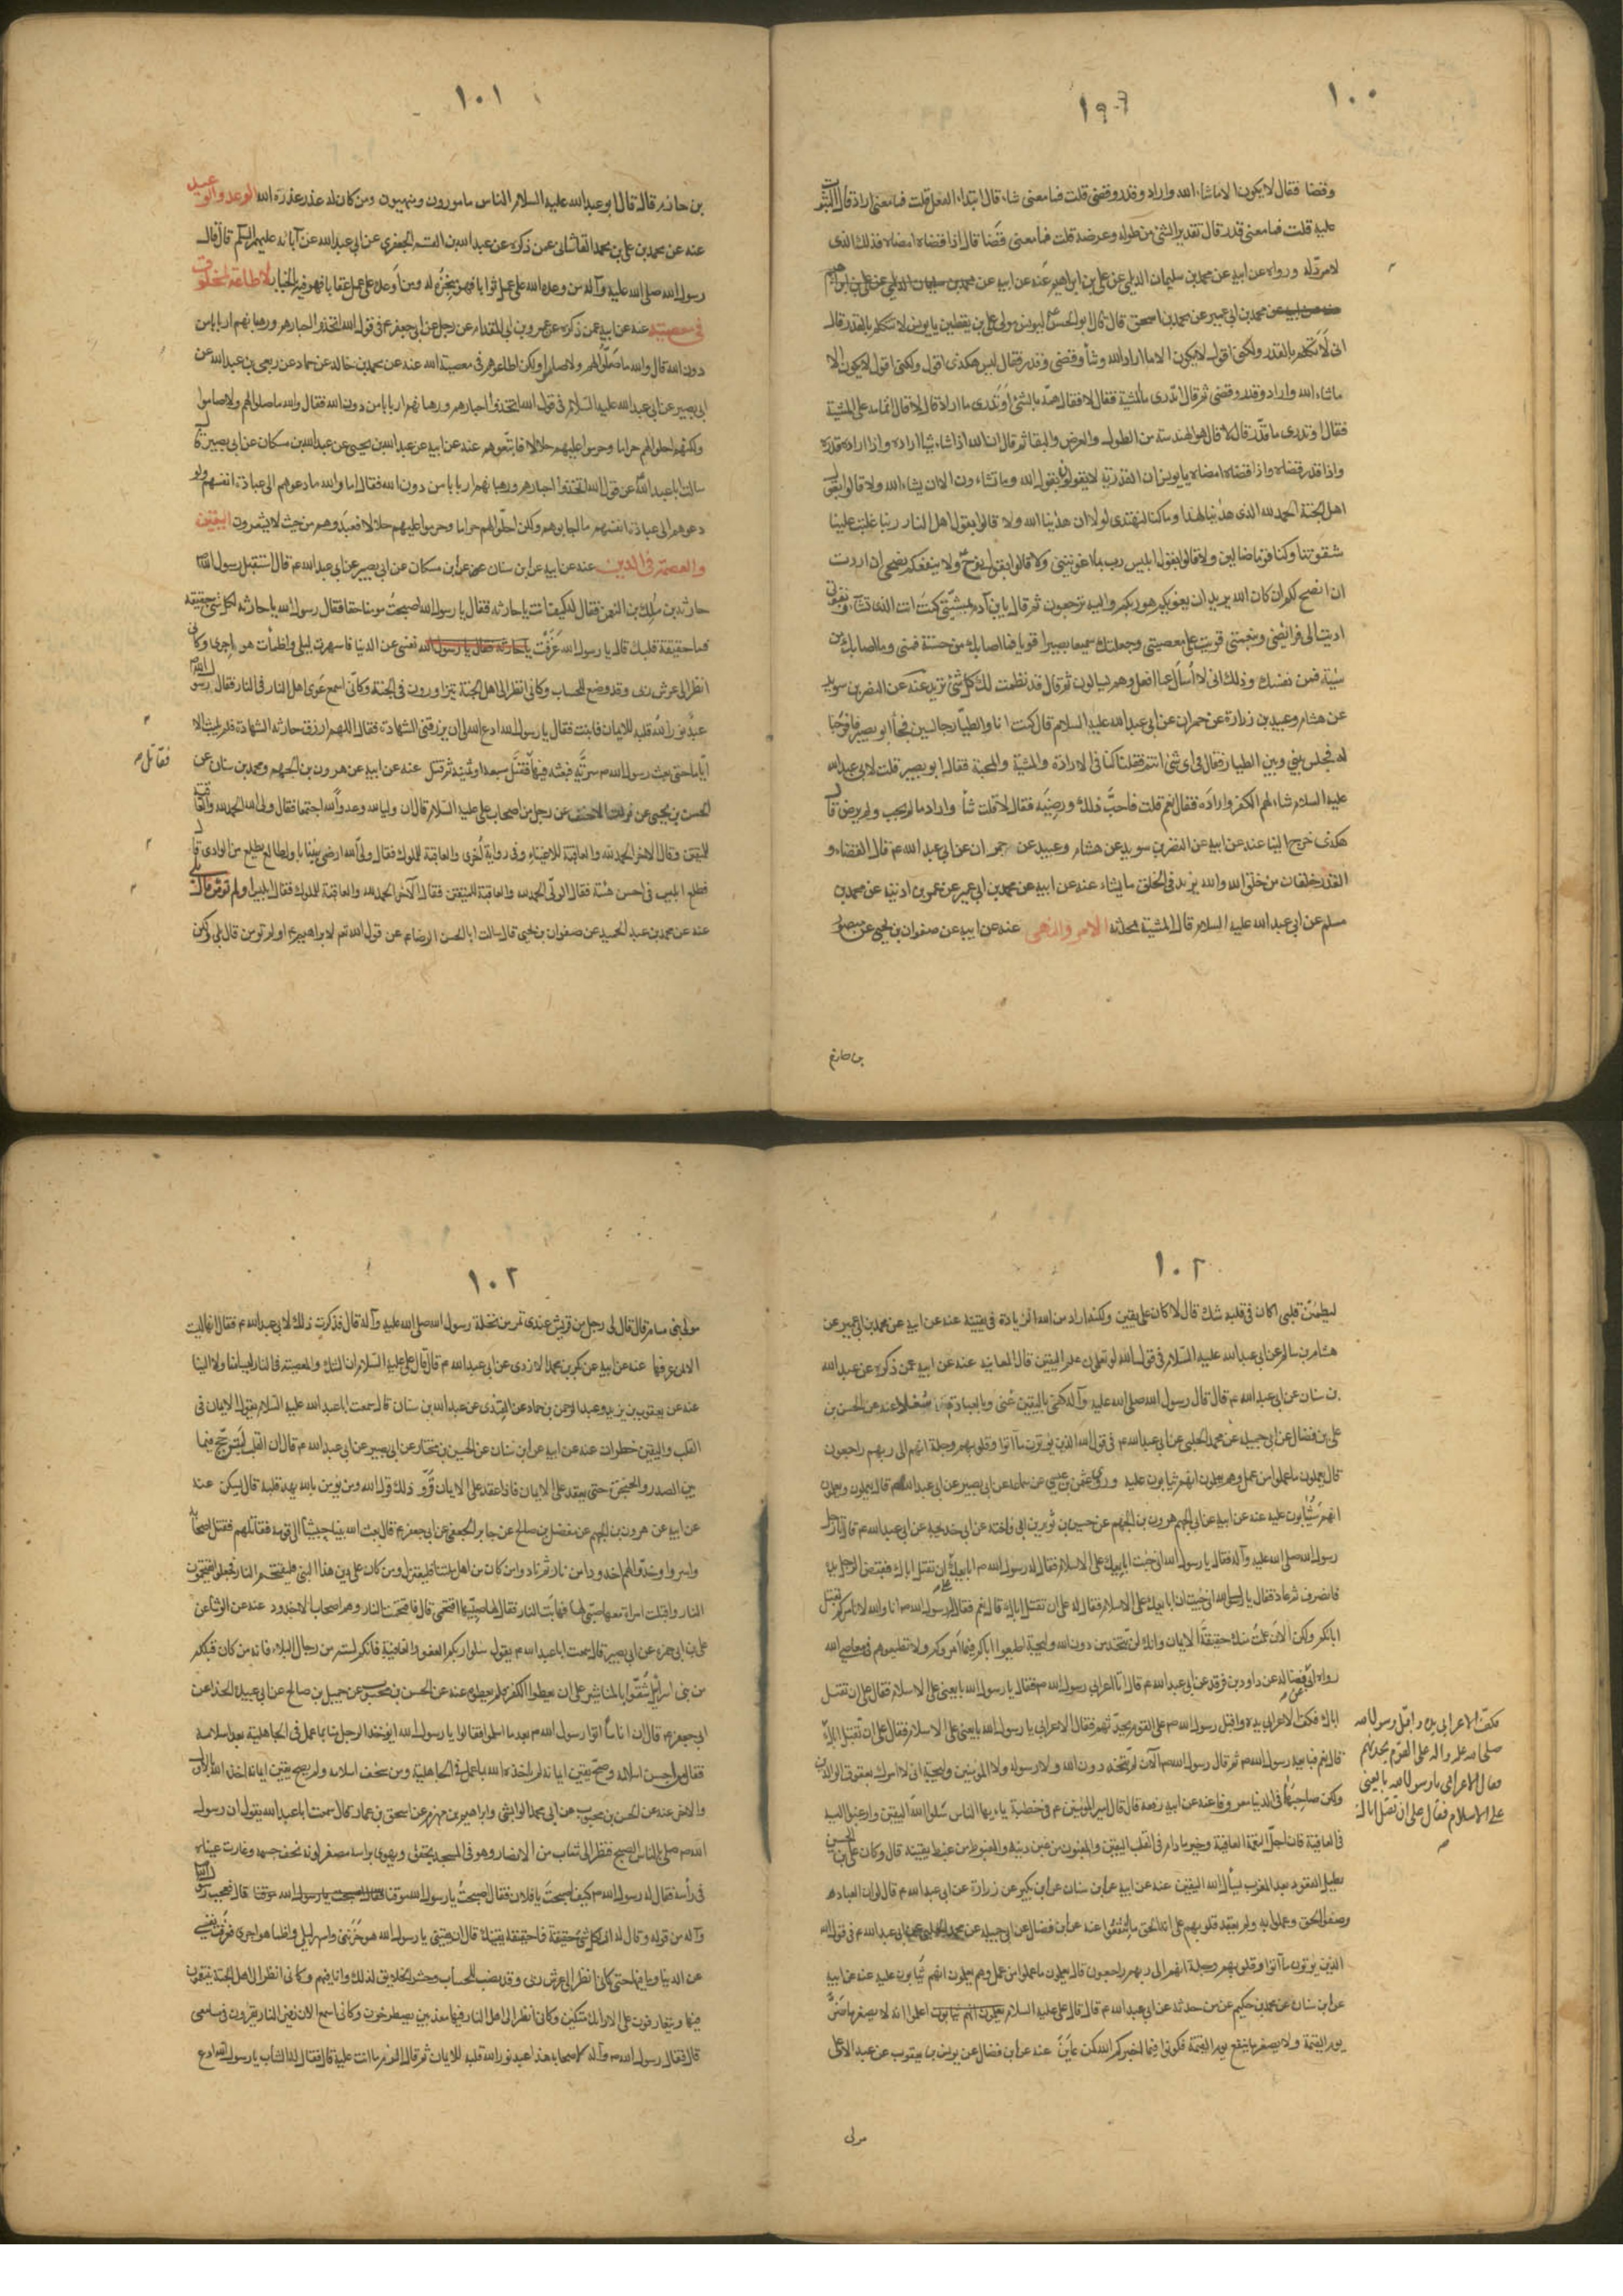 ١٠٠
١٩٠٦
وقضا فقال لا يكون الا ماشاء الله واراد وقدر وقضى قلت فما معنى شاء قال ابتداء الفعل قلت فما معنى اراد قال الثبوت
عليه قلت فما معنى قدر قال تقدير الشئ من طوله وعرضه قلت فما معنى قضا قال اذا قضاه امضاه فذلك الذى
لا مرد له ورواه عن ابيه عن محمد بن سليمان الديلمى عن على بن ابراهيم عنه عن ابيه عن محمد بن سليمان الديلمى عن على بن ابراهيم
عن محمد بن ابى عمير عن محمد بن اسحق قال قال ابو الحسن ليونس مولى على بن يقطين يا يونس لا تتكلم بالقدر قال
انى لا اتكلم بالقدر ولكنى اقول لا يكون الا ما اراد الله وشاء وقضى وقدر فقال ليس هكذى اقول ولكنى اقول لا يكون الا
ماشاء الله واراد وقدر وقضى ثم قال اتدرى ما المشية فقال لا فقال همه بالشئ اوتدرى ما اراد قال لا قال اتمامه على المشية
فقال اوتدرى ما قدر قال لا قال هو الهندسة من الطول والعرض والبقا ثم قال ان الله اذا شاء شيئا اراده واذا اراده قدره
واذا قدر قضاه واذا قضاه امضاه يا يونس ان القدرية لا يقولوا بقول الله وما تشاءون الا ان يشاء الله ولا قالوا بقول
اهل الجنة الحمد لله الذى هدينا لهذا وما كنا لنهتدى لولا ان هدينا الله ولا قالوا بقول اهل النار ربنا غلبت علينا
شقوتنا وكنا قوما ضالين ولا قالوا بقول ابليس رب بما اغويتنى ولا قالوا بقول نوح ولا ينفعكم نصحى ان اردت
ان انصح لكم ان كان الله يريد ان يغويكم هو ربكم واليه ترجعون ثم قال يا بن آدم بمشيتى كنت انت الذى تشاء وبقوتى
اديت الى فرائضى وبنعمتى قويت على معصيتى وجعلتك سميعا بصيرا قويا فما اصابك من حسنة فمنى وما اصابك من
سيئة فمن نفسك وذلك انى لا اسأل عما افعل وهم يسالون ثم قال قد نظمت لك كل شئ تريد عنه عن النضر بن سويد
عن هشام وعبيد بن زرارة عن حمران عن ابى عبدالله عليه السلام قال كنت انا والطيار جالسين فجاء ابو بصير فافرجنا
له فجلس بينى وبين الطيار فقال فى اى شئ انتم فقلنا كنا فى الارادة والمشية والمحبة فقال ابو بصير قلت لابى عبدالله
عليه السلام شاء لهم الكفر واراده فقال نعم قلت فاحب ذلك ورضيه فقال لا قلت شاء واراد ما لم يحب ولم يرض قال
هكذى خرج الينا عنه عن ابيه عن النضر بن سويد عن هشام وعبيد عن حمران عن ابى عبدالله ع قال القضاء و
القدر خلقان من خلق الله والله يزيد فى الخلق ما يشاء عنه عن ابيه عن محمد بن ابى عمير عن عمر بن اذنيه عن محمد بن
مسلم عن ابى عبدالله عليه السلام قال المشية محدثة الامر والنهى عنه عن ابيه عن صفوان بن يحيى عن منصور
بن حازم
١٠١
بن حازم قال قال ابو عبدالله عليه السلام الناس مامورون ومنهيون ومن كان له عذر عذره الله الوعد والوعيد
عنه عن محمد بن على بن محمد القاشانى عمن ذكره عن عبدالله بن القسم الجعفرى عن ابى عبدالله عن آبائه عليهم السلم قال قال
رسول الله صلى الله عليه وآله من وعده الله على عمل ثوابا فهو منجزه له ومن اوعده على عمل عقابا فهو فيه بالخيار لا طاعة لمخلوق
فى معصيته عنه عن ابيه عمن ذكره عن عمرو بن ابى المقدام عن رجل عن ابى جعفر ع فى قول الله اتخذوا احبارهم ورهبانهم اربابا من
دون الله قال والله ما صلوا لهم ولا صاموا ولكن اطاعوهم فى معصية الله عنه عن محمد بن خالد عن حماد عن ربعى بن عبدالله عن
ابى بصير عن ابى عبدالله عليه السلام فى قول الله اتخذوا احبارهم ورهبانهم اربابا من دون الله فقال والله ما صلوا لهم ولا صاموا
ولكنهم احلوا لهم حراما وحرموا عليهم حلالا فاتبعوهم عنه عن ابيه عن عبدالله بن يحيى عن عبدالله بن مسكان عن ابى بصير قال
سالت ابا عبدالله عن قول الله اتخذوا احبارهم ورهبانهم اربابا من دون الله فقال اما والله ما دعوهم الى عبادة انفسهم ولو
دعوهم الى عبادة انفسهم ما اجابوهم ولكن احلوا لهم حراما وحرموا عليهم حلالا فعبدوهم من حيث لا يشعرون اليقين
والعصمة فى الدين عنه عن ابيه عن ابن سنان عن ابن مسكان عن ابى بصير عن ابى عبدالله ع قال استقبل رسول الله
حارثه بن مالك بن النعمن فقال له كيف انت يا حارثه فقال يا رسول الله اصبحت مومنا حقا فقال رسول الله يا حارثه لكل شئ حقيقه
فما حقيقة قلبك قال يا رسول الله عزفت يا حارثه فقال يا رسول الله نفسى عن الدنيا فاسهرت ليلى واظمأت هواجرى وكانى
انظر الى عرش ربى وقد وضع للحساب وكانى انظر الى اهل الجنة يتزاورون فى الجنة وكانى اسمع عوى اهل النار فى النار فقال رسول الله
عبد نور الله قلبه للايمان فاثبت فقال يا رسول الله ادع الله لى ان يرزقنى الشهادة فقال اللهم ارزق حارثه الشهادة فلم يلبث الا
اياما حتى بعث رسول الله ص سرية فبعثه فيها فقتل سبعة او ثمنية ثم قتل عنه عن ابيه عن هرون بن الجهم ومحمد بن سنان عن
فقاتل ص
الحسن بن يحيى عن فرات الاحنف عن رجل من اصحاب على عليه السلام قال ان وليا لله وعدوا لله اجتمعا فقال ولى الله الحمد لله والعاقبة
للمتقين وقال الاخر الحمد لله والعاقبة للاغنياء وفى رواية اخرى والعاقبة للملوك فقال ولى الله ارضى بيننا باول طالع يطلع من الوادى قال
فطلع ابليس فى احسن هيئة فقال الولى الحمد لله والعاقبة للمتقين فقال الآخر الحمد لله والعاقبة للملوك فقال ابليس
عنه عن محمد بن عبد الحميد عن صفوان بن يحيى قال سالت ابا الحسن الرضا ع عن قول الله تعم لابراهيم اولم تؤمن قال بلى ولكن
١٠٢
ليطمئن قلبى اكان فى قلبه شك قال لا كان على يقين ولكنه اراد من الله الزيادة فى يقينه عنه عن ابيه عن محمد بن ابى عمير عن
هشام بن سالم عن ابى عبدالله عليه السلام فى قول الله لو تعلمون علم اليقين قال المعاينة عنه عن ابيه عمن ذكره عن عبدالله
بن سنان عن ابى عبدالله ع قال قال رسول الله صلى الله عليه وآله كفى باليقين غنى وبالعبادة شغلا عنه عن الحسن بن
على بن فضال عن ابى جميله عن محمد الحلبى عن ابى عبدالله ع فى قول الله الذين يؤتون ما آتوا وقلوبهم وجلة انهم الى ربهم راجعون
قال يعملون ما عملوا من عمل وهم يعلمون انهم يثابون عليه وروى عثمن بن عيسى عن سماعة عن ابى بصير عن ابى عبدالله ع قال يعملون ويعلمون
انهم سيثابون عليه عنه عن ابيه عن ابى الجهم هرون بن الجهم عن حسين بن ثوير بن ابى فاخته عن ابى خديجة عن ابى عبدالله ع قال اتى رجل
رسول الله صلى الله عليه وآله فقال يا رسول الله انى جئت ابايعك على الاسلام فقال له رسول الله ص ابايعك على ان تقتل اباك فقبض الرجل يده
فانصرف ثم عاد فقال يا رسول الله انى جئت ان ابايعك على الاسلام فقال له على ان تقتل اباك قال نعم فقال له رسول الله ص انا والله لا نامركم بقتل
ابائكم ولكن الان علمت منك حقيقة الايمان وانك لن تتخذ من دون الله وليجة اطيعوا اباكم فيما امروكم ولا تطيعوهم فى معاصى الله
رواه ابى عن فضاله عن داود بن فرقد عن ابى عبدالله ع قال اتى اعرابى رسول الله ص فقال يا رسول الله بايعنى على الاسلام فقال على ان تقتل
اباك فكف الاعرابى يده واقبل رسول الله ص على القوم يحدثهم فقال الاعرابى يا رسول الله بايعنى على الاسلام فقال على ان تقتل اباك
قال نعم فبايعه رسول الله ص ثم قال رسول الله ص الآن لم تتخذ دون الله ولا رسوله ولا المؤمنين وليجة انى لا امرك بعقوق الوالدين
ولكن صاحبهما فى الدنيا معروفا عنه عن ابيه رفعه قال قال امير المؤمنين ع فى خطبة يا ايها الناس سلوا الله اليقين وارغبوا اليه
فى العافية فان اجل النعمة العافية وخير ما دام فى القلب اليقين والمغبون من غبن دينه والمغبوط من غبط يقينه قال وكان على بن الحسين
يطيل القعود بعد المغرب يسأل الله اليقين عنه عن ابيه عن ابن سنان عن ابن بكير عن زرارة عن ابى عبدالله ع قال لو ان العباد
وصفوا الحق وعملوا به ولم يعقد قلوبهم على انه الحق ما انتفعوا عنه عن ابن فضال عن ابى جميله عن محمد الحلبى عن ابى عبدالله ع فى قول الله
الذين يؤتون ما آتوا وقلوبهم وجلة انهم الى ربهم راجعون قال يعملون ما عملوا من عمل وهم يعلمون انهم يثابون عليه عنه عن ابيه
عن ابن سنان عن محمد بن حكيم عن من حدثه عن ابى عبدالله ع قال قال على عليه السلام يعلمون انهم يثابون اعلموا انه لا يصغر ما ضر
يوم القيمة ولا يصغر ما ينفع يوم القيمة فكونوا فيما اخبركم الله كمن عاين عنه عن ابن فضال عن يونس بن يعقوب عن عبد الاعلى
مولى
فكف الاعرابى يده واقبل رسول الله
صلى الله عليه واله على القوم يحدثهم
فقال الاعرابى يا رسول الله بايعنى
على الاسلام فقال على ان تقتل اباك
١٠٢
مولى بنى سام قال قال لى رجل من قريش عندى تمر من نخلة رسول الله صلى الله عليه وآله قال فذكرت ذلك لابى عبدالله ع فقال انها ليست
الا لمن عرفها عنه عن ابيه عن بكر بن محمد الازدى عن ابى عبدالله ع قال قال على عليه السلام ان الشك والمعصية فى النار ليسا منا ولا الينا
عنه عن يعقوب بن يزيد وعبد الرحمن بن حماد عن العبدى عن عبدالله بن سنان قال سمعت ابا عبدالله عليه السلام يقول الايمان فى
القلب واليقين خطرات عنه عن ابيه عن ابن سنان عن الحسين بن مختار عن ابى بصير عن ابى عبدالله ع قال ان القلب ليترجج فيما
بين الصدر والحنجرة حتى يعقد على الايمان فاذا عقد على الايمان قر وذلك قول الله ومن يؤمن بالله يهد قلبه قال ليسكن عنه
عن ابيه عن هرون بن الجهم عن مفضل بن صالح عن جابر الجعفى عن ابى جعفر ع قال بعث الله نبيا حبشيا الى قومه فقاتلهم فقتل اصحابه
واسروا وخدوا لهم اخدودا من نار ثم نادوا من كان من اهل ملتنا فليعتزل ومن كان على دين هذا النبى فليقتحم النار فجعلوا يقتحمون
النار واقبلت امراة معها صبى لها فهابت النار فقال لها صبيها اقتحمى قال فاقتحمت النار وهم اصحاب الاخدود عنه عن الوشا عن
على بن ابى حمزه عن ابى بصير قال سمعت ابا عبدالله ع يقول سلوا ربكم العفو والعافية فانكم لستم من رجال البلاء فانه من كان قبلكم
من بنى اسرائيل شقوا بالمناشير على ان يعطوا الكفر فلم يعطوه عنه عن الحسن بن محبوب عن جميل بن صالح عن ابى عبيدة الحذاء عن
ابى جعفر ع قال ان اناسا اتوا رسول الله ص بعد ما اسلموا فقالوا يا رسول الله ايوخذ الرجل منا بما عمل فى الجاهلية بعد اسلامه
فقال من احسن اسلامه وصح يقين ايمانه لم ياخذه الله بما عمل فى الجاهلية ومن سخف اسلامه ولم يصح يقين ايمانه اخذه الله بالاول
والاخر عنه عن الحسن بن محبوب عن ابى محمد الوابشى وابراهيم بن مهزم عن اسحق بن عمار قال سمعت ابا عبدالله يقول ان رسول
الله ص صلى بالناس الصبح فنظر الى شاب من الانصار وهو فى المسجد يخفق ويهوى براسه مصفر لونه نحف جسمه وغارت عيناه
فى رأسه فقال له رسول الله ص كيف اصبحت يا فلان فقال اصبحت يا رسول الله موقنا فقال اصبحت يا رسول الله موقنا قال فعجب رسول الله
وآله من قوله وقال له ان لكل شئ حقيقة فما حقيقة يقينك قال ان يقينى يا رسول الله هو حزننى واسهر ليلى واظما هواجرى فعزفت نفسى
عن الدنيا وما فيها حتى كانى انظر الى عرش ربى وقد نصب للحساب وحشر الخلايق لذلك وانا فيهم وكانى انظر الى اهل الجنة يتنعمون
فيها ويتعارفون على الارائك متكئين وكانى انظر الى اهل النار فيها معذبين يصطرخون وكانى اسمع الان زفير النار يقرون فى مسامعى
قال فقال رسول الله ص وآله لاصحابه هذا عبد نور الله قلبه للايمان ثم قال الزم ما انت عليه قال فقال له الشاب يا رسول الله ادع